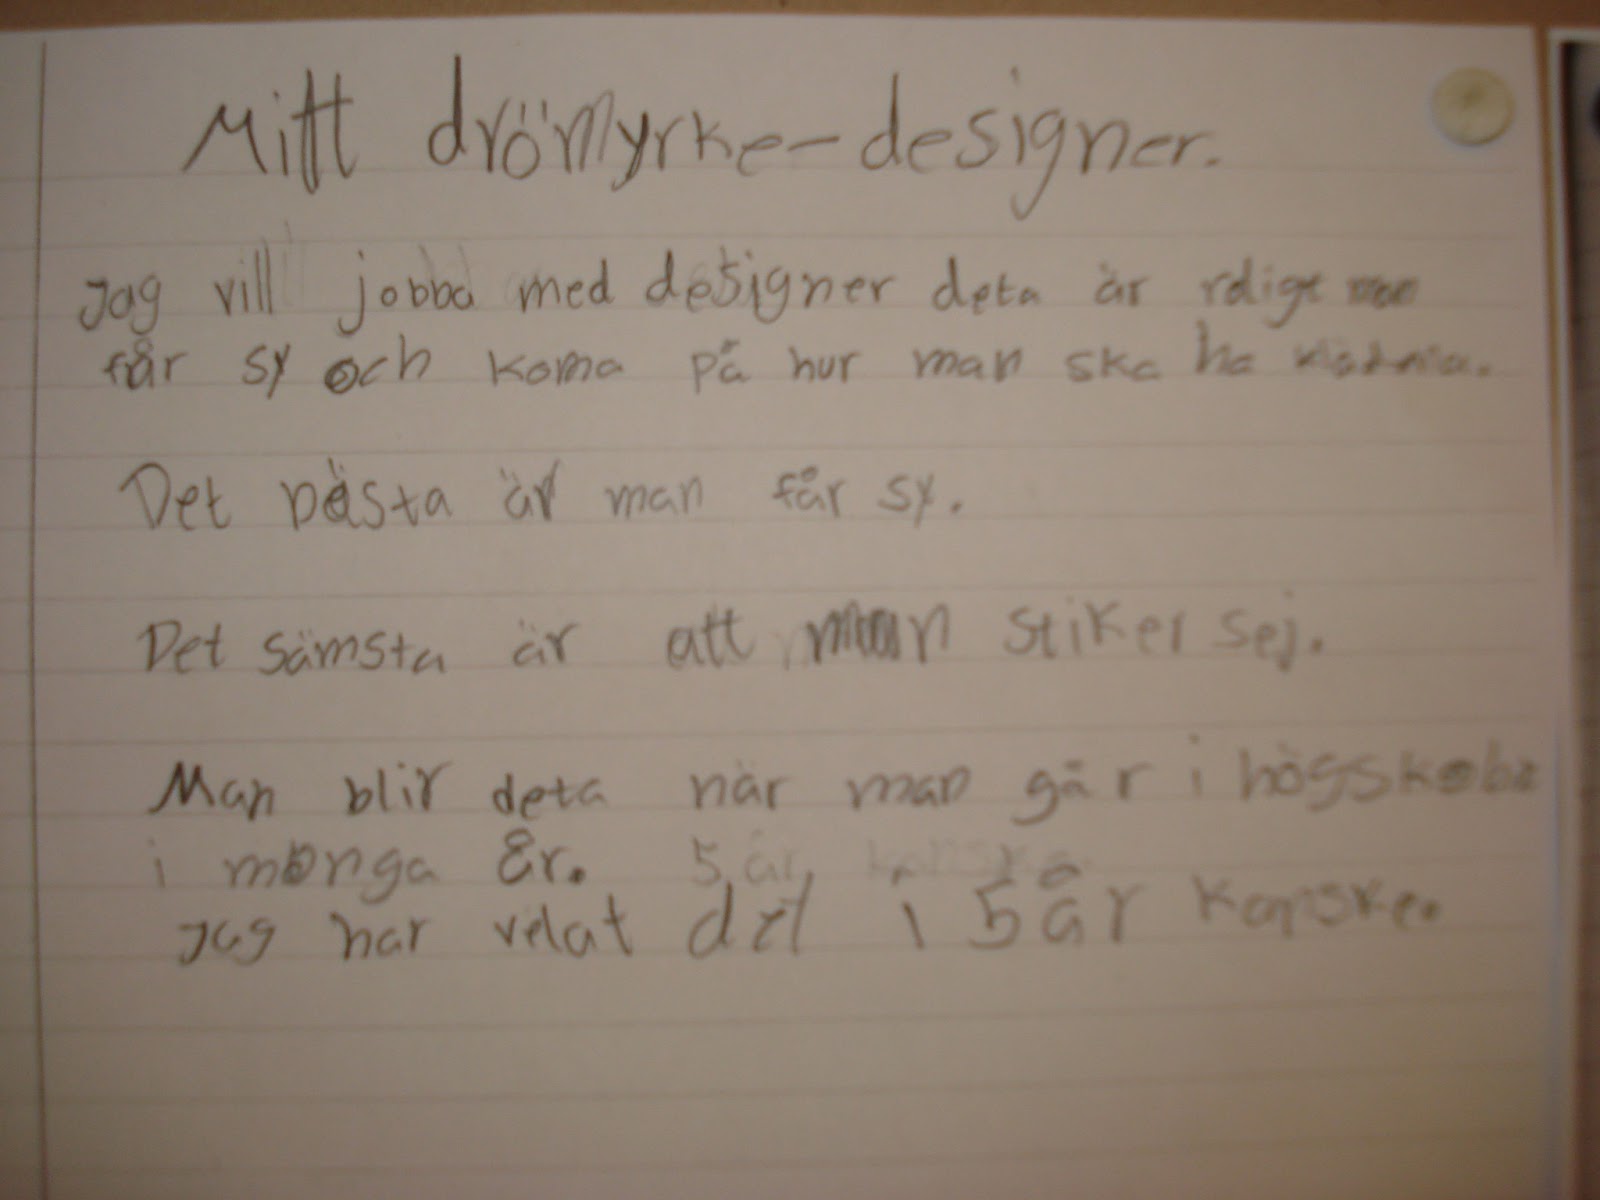 Mitt drömyrke-designer.
Jag vill jobba med designer deta är rdigt man
får sy och koma på hur man ska ha
Det bästa är man får sy.
Det sämsta är att man stiker sej.
Man blir deta när man går i högskola
i monga år. 5 år kanske
Jag har velat det i 5 år kanske.